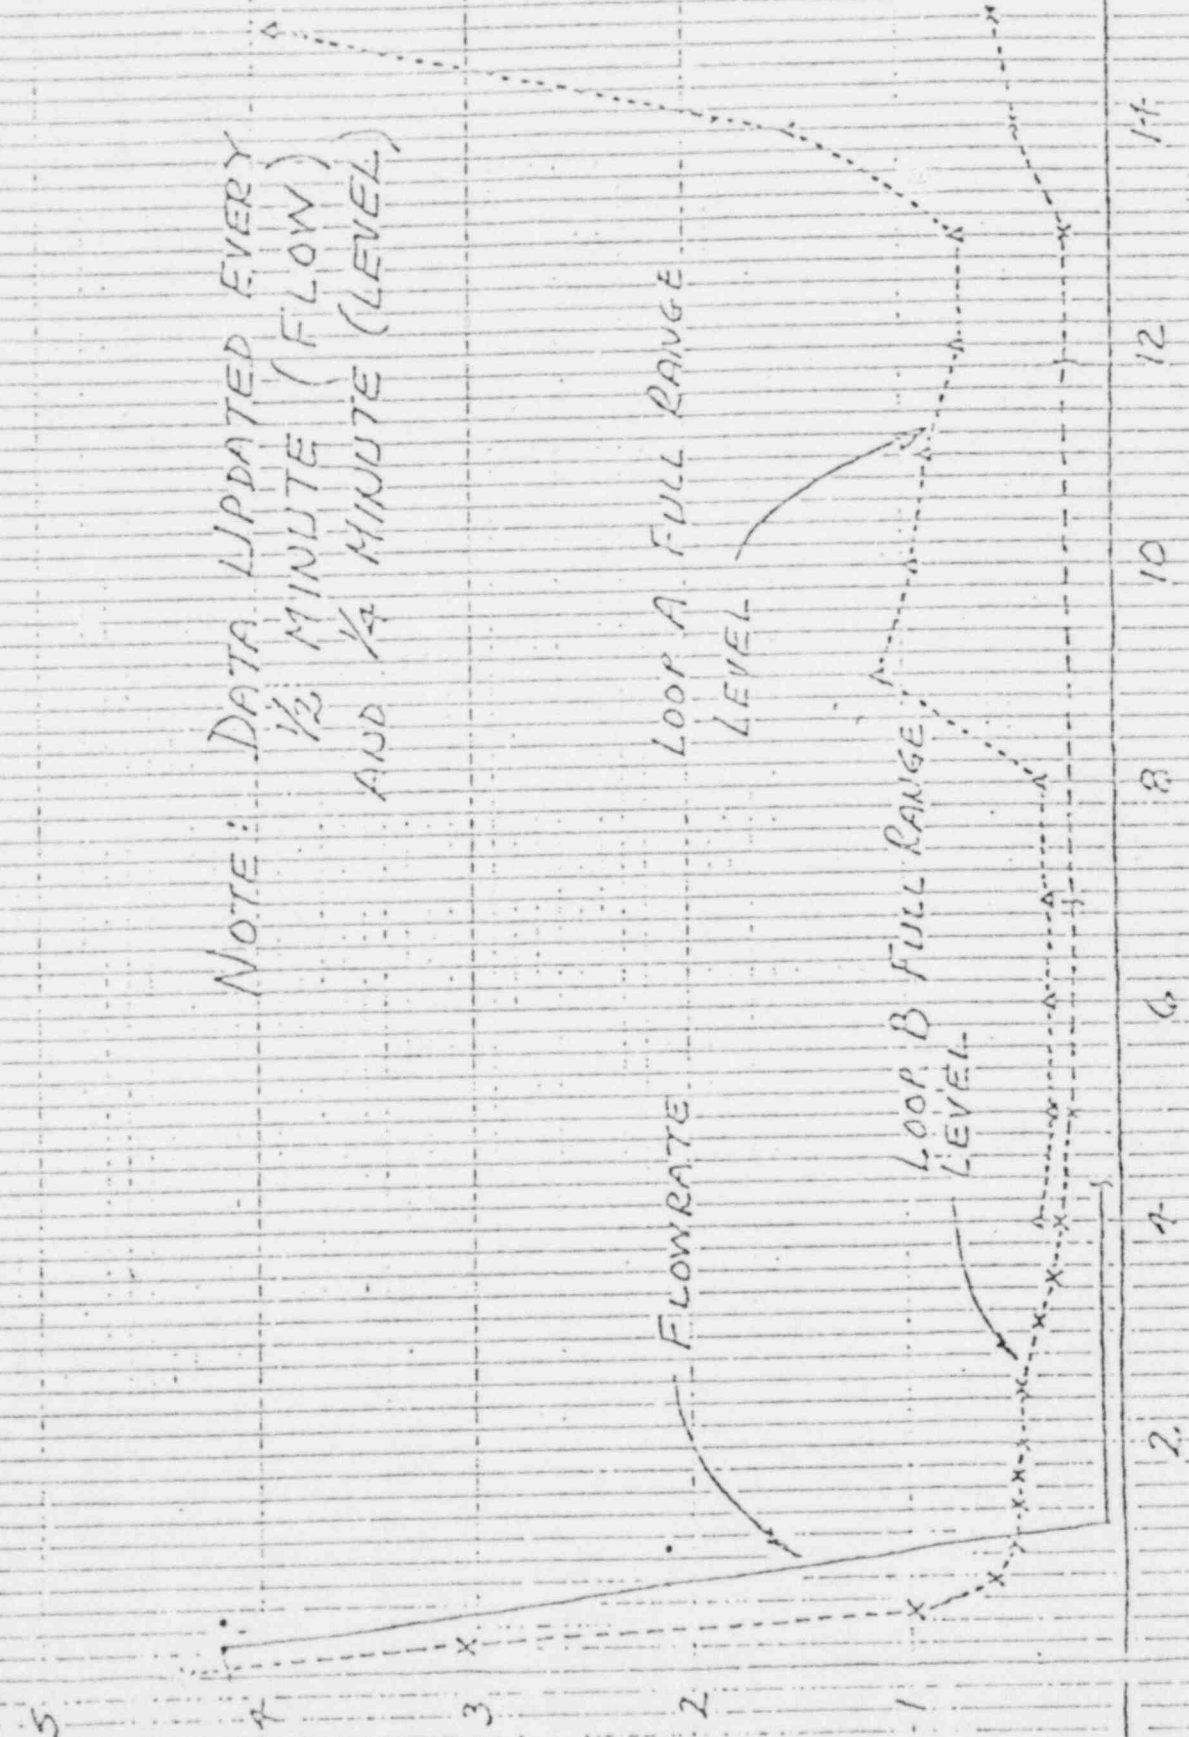 NOTE: DATA UPDATED EVERY
1/2 MINUTE (FLOW)
AND 1/4 MINUTE (LEVEL)
LOOP A FULL RANGE
LEVEL
FLOWRATE
LOOP B FULL RANGE
LEVEL
5
4
3
2
1
2
4
6
8
10
12
14